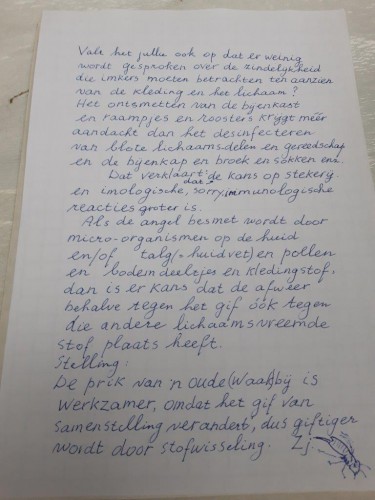 Valt het jullie ook op dat er weinig
wordt gesproken over de zindelijkheid
die imkers moeten betrachten ten aanzien
van de kleding en het lichaam?
Het ontsmetten van de bijenkast
en raampjes en roosters krijgt méér
aandacht dan het desinfecteren
van blote lichaamsdelen en gereedschap
en de bijenkap en broek en sokken enz.
Dat verklaart dat de kans op stekerij
en imologische, sorry immunologische
reacties groter is.
Als de angel besmet wordt door
micro-organismen op de huid
en/of talg(=huidvet) en pollen
en bodemdeeltjes en kledingstof,
dan is er kans dat de afweer
behalve tegen het gif óók tegen
die andere lichaamsvreemde
stof plaats heeft.
Stelling:
De prik van 'n oude (Waal)bij is
werkzamer, omdat het gif van
samenstelling verandert, dus giftiger
wordt door stofwisseling. Zj